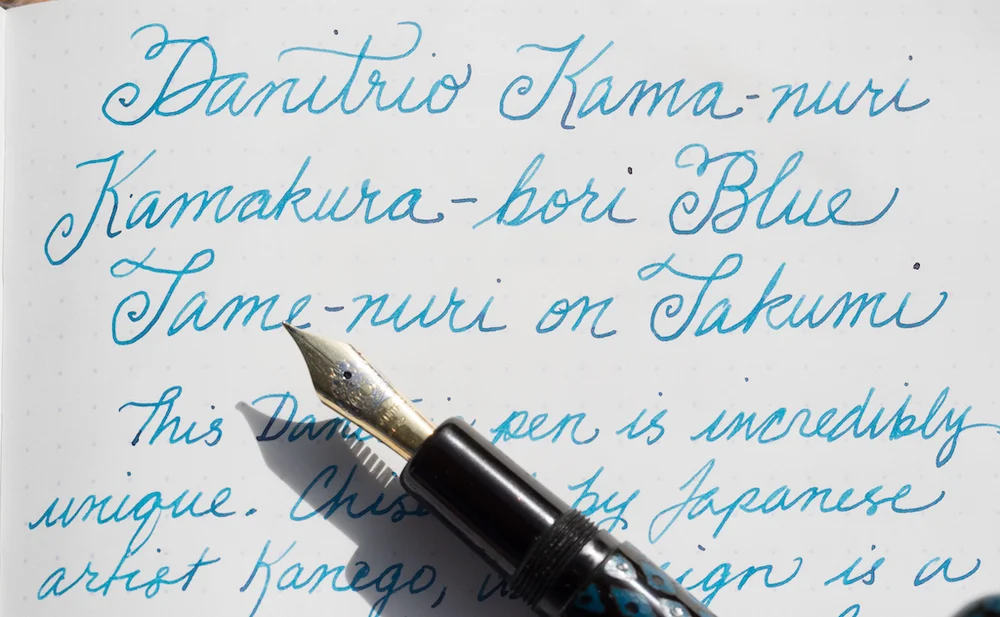 Danitrio Kama-nuri
Kamakura-bori Blue
Tame-nuri on Takumi
This pen is incredibly
unique. by Japanese
artist Kanego, is a